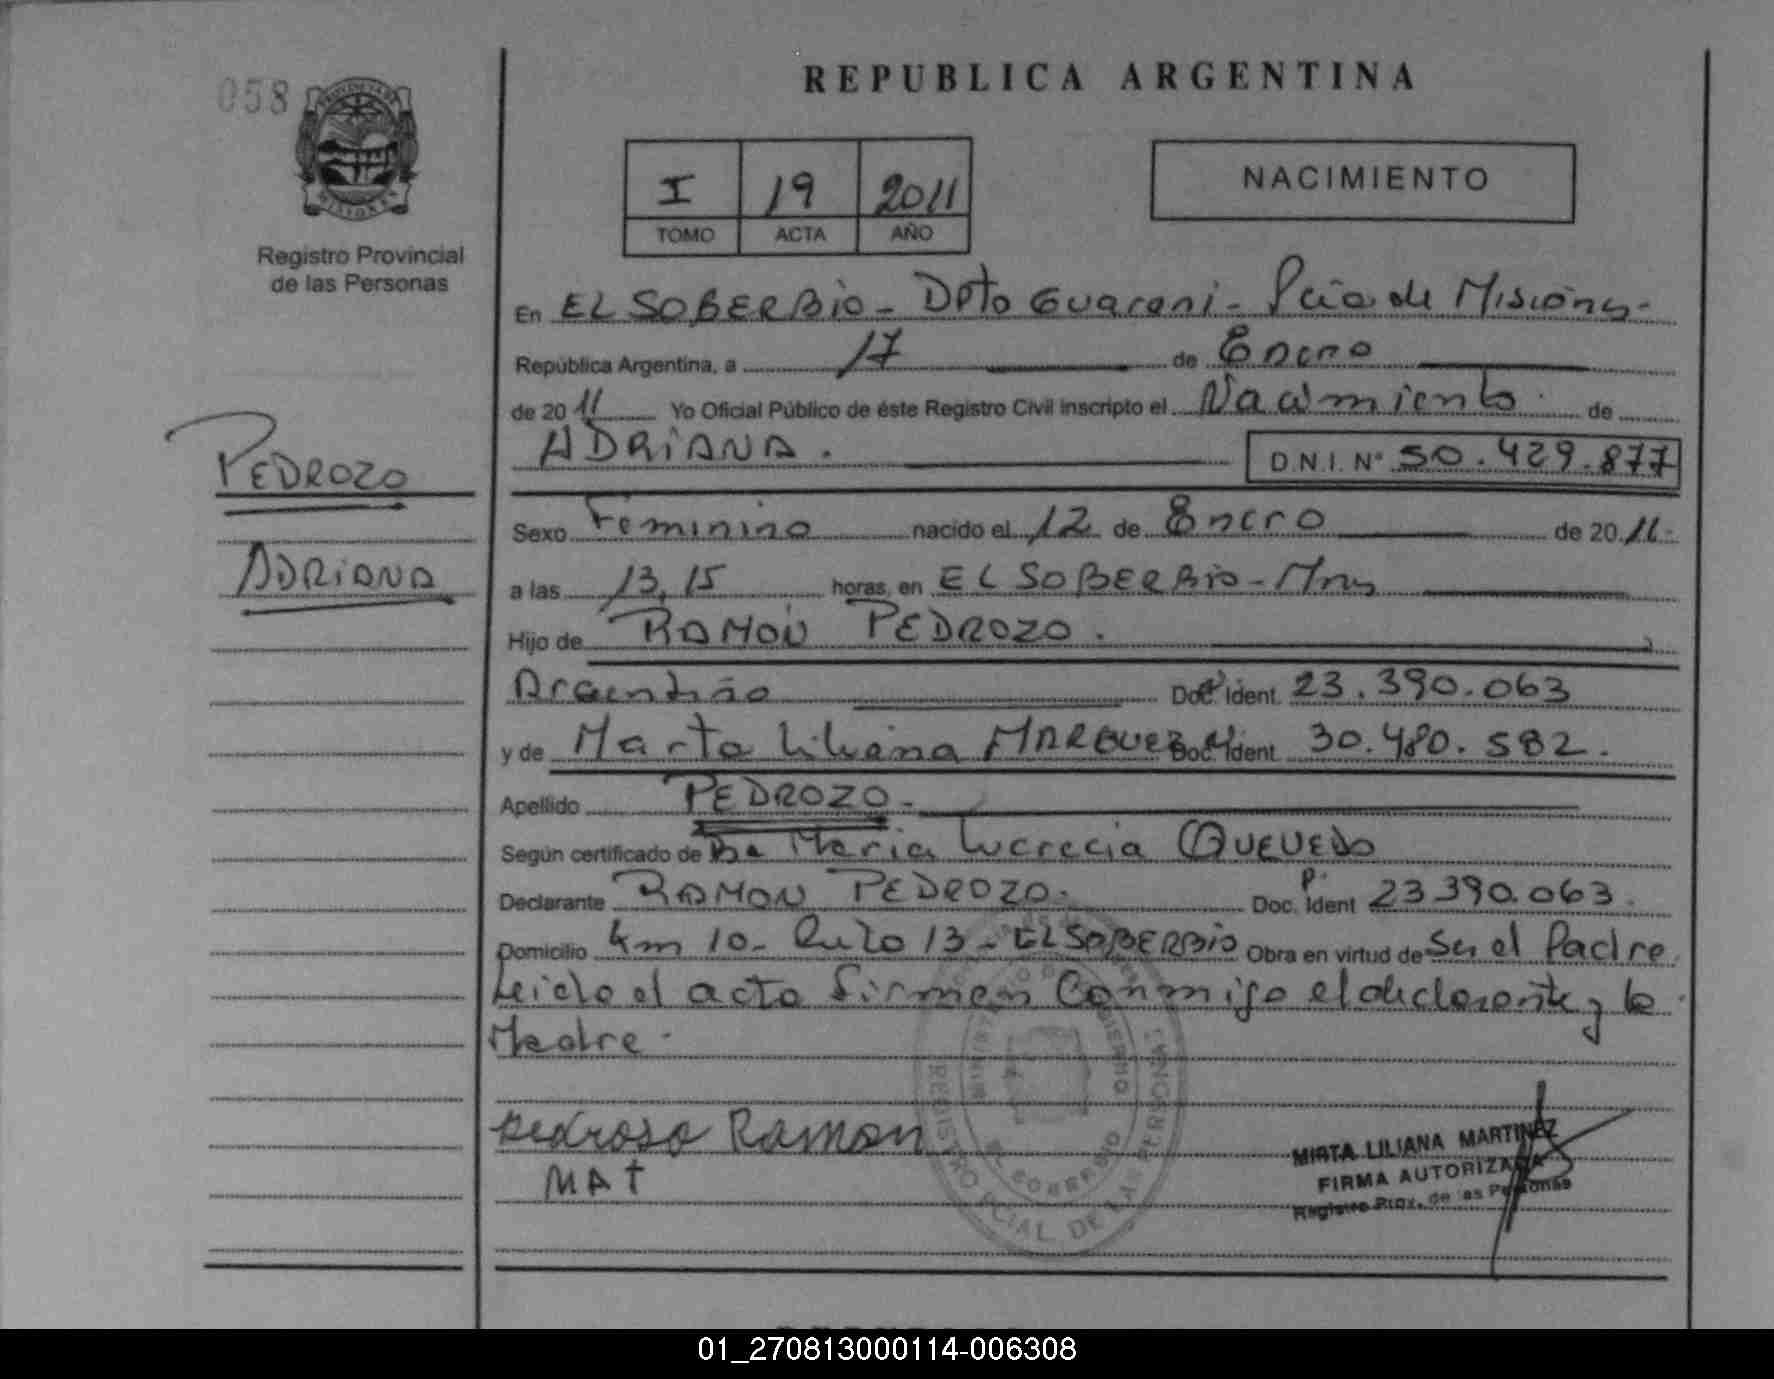 REPUBLICA ARGENTINA
058
PROVINCIA DE
MISIONES
Registro Provincial
de las Personas
I 19 2011
TOMO ACTA AÑO
NACIMIENTO
En EL SOBERBIO - Dpto Guarani - Pcia de Misiones -
República Argentina, a 17 de Enero
de 2011 Yo Oficial Público de éste Registro Civil inscripto el Nacimiento de
ADRIANA. D.N.I. N° 50.429.877
PEDROZO
ADRIANA
Sexo Feminino nacido el 12 de Enero de 2011.
a las 13,15 horas, en EL SOBERBIO - Mnes
Hijo de RAMON PEDROZO.
Argentino Doc. Ident. 23.390.063
y de Marta Liliana MARQUEZ Doc. Ident. 30.480.582.
Apellido PEDROZO -
Según certificado de Dra Maria Lucrecia QUEVEDO
Declarante RAMON PEDROZO. Doc. Ident P. 23390.063.
Domicilio Km 10 - Ruta 13 - EL SOBERBIO Obra en virtud de Ser el Padre.
Leido el acta firman Conmigo el declarante y la
Madre.
Pedroso Ramon
MAT
REGISTRO DE LAS PERSONAS
EL SOBERBIO
MIRTA LILIANA MARTINEZ
FIRMA AUTORIZADA
Registro Prov. de las Personas
01_270813000114-006308